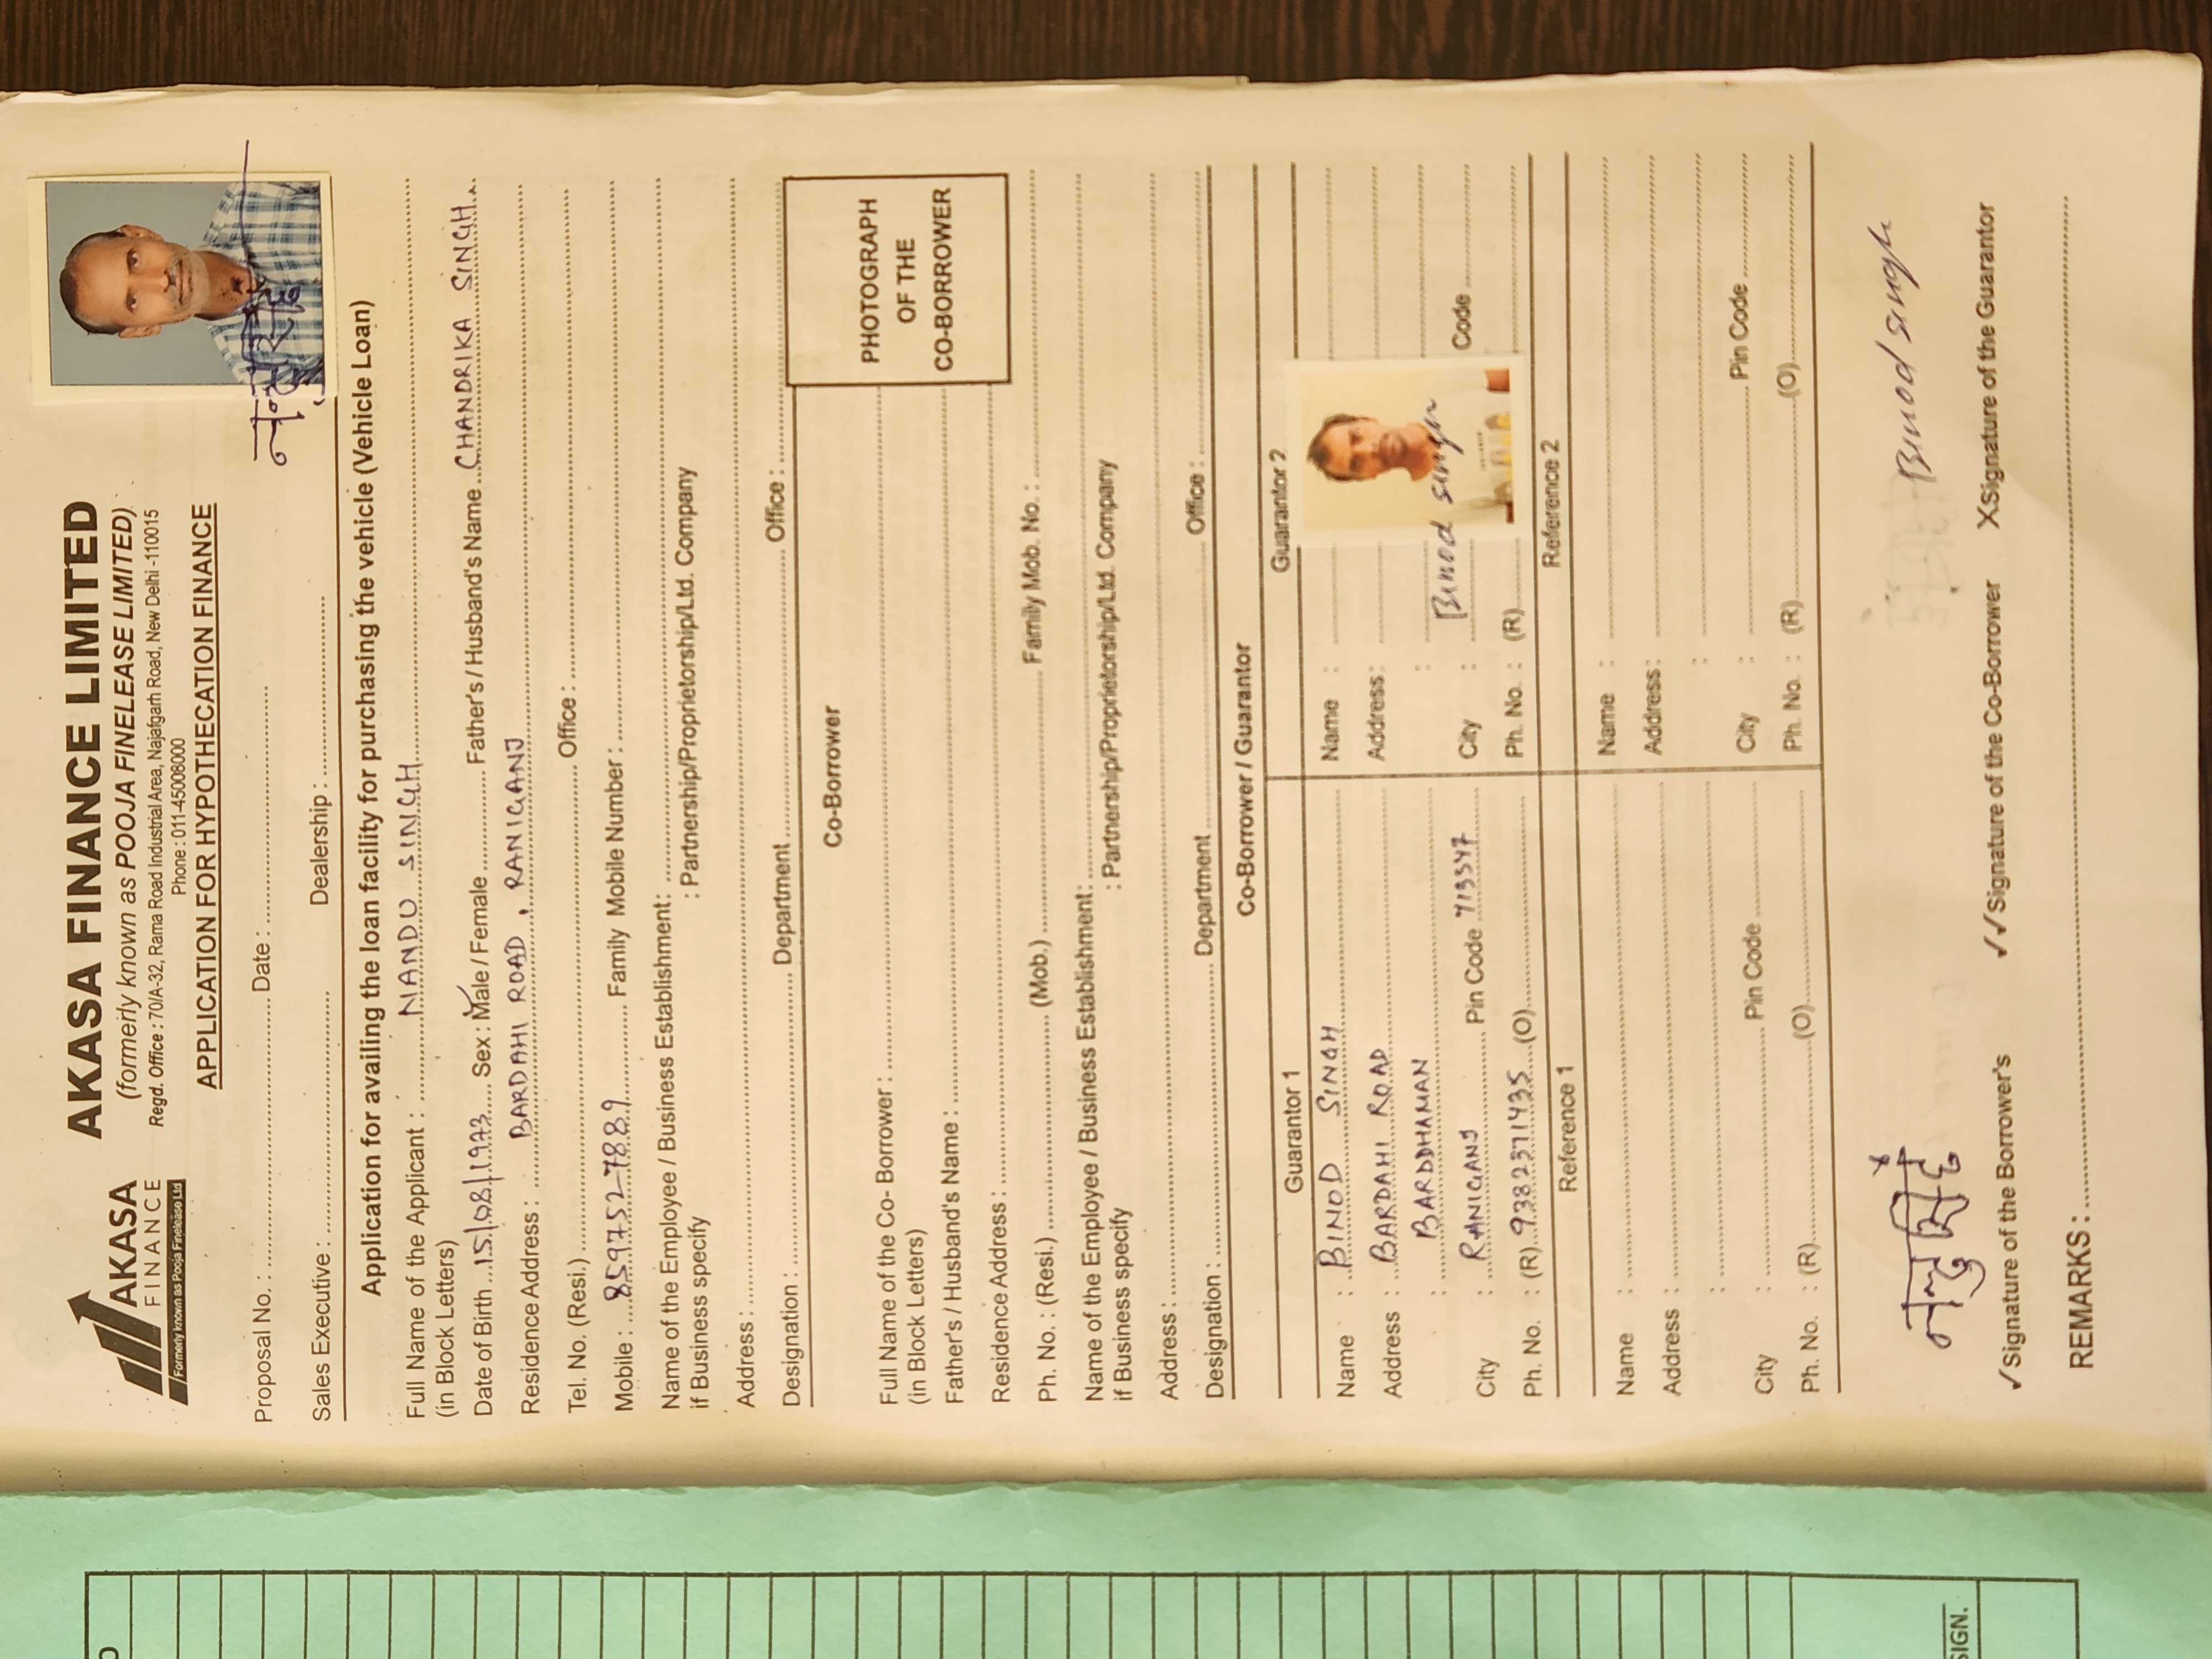 O
SIGN.
AKASA
FINANCE
Formerly known as Pooja Finelease Ltd
AKASA FINANCE LIMITED
(formerly known as POOJA FINELEASE LIMITED)
Regd. Office : 70/A-32, Rama Road Industrial Area, Najafgarh Road, New Delhi -110015
Phone : 011-45008000
APPLICATION FOR HYPOTHECATION FINANCE
Proposal No. : Date :
Sales Executive : Dealership :
Application for availing the loan facility for purchasing the vehicle (Vehicle Loan)
Full Name of the Applicant : NANDU SINGH
(in Block Letters)
Date of Birth 15/08/1973 Sex : Male / Female Father's / Husband's Name CHANDRIKA SINGH
Residence Address : BARDAHI ROAD , RANIGANJ
Tel. No. (Resi.) Office :
Mobile : 8597527889 Family Mobile Number :
Name of the Employee / Business Establishment:
if Business specify : Partnership/Proprietorship/Ltd. Company
Address :
Designation : Department Office :
Co-Borrower
PHOTOGRAPH
OF THE
CO-BORROWER
Full Name of the Co- Borrower :
(in Block Letters)
Father's / Husband's Name :
Residence Address :
Ph. No. : (Resi.) (Mob.) Family Mob. No. :
Name of the Employee / Business Establishment:
if Business specify : Partnership/Proprietorship/Ltd. Company
Address :
Designation : Department Office :
Co-Borrower / Guarantor
Guarantor 1
Name : BINOD SINGH
Address : BARDAHI ROAD
: BARDDHAMAN
City : RANIGANJ Pin Code 713347
Ph. No. : (R) 9382371435 (O)
Guarantor 2
Name :
Address :
:
Binod singh
City : Code
Ph. No. : (R)
Reference 1
Name :
Address :
:
City : Pin Code
Ph. No. : (R) (O)
Reference 2
Name :
Address :
:
City : Pin Code
Ph. No. : (R) (O)
नन्दु सिंह
Binod singh
✓Signature of the Borrower's ✓✓Signature of the Co-Borrower XSignature of the Guarantor
REMARKS :